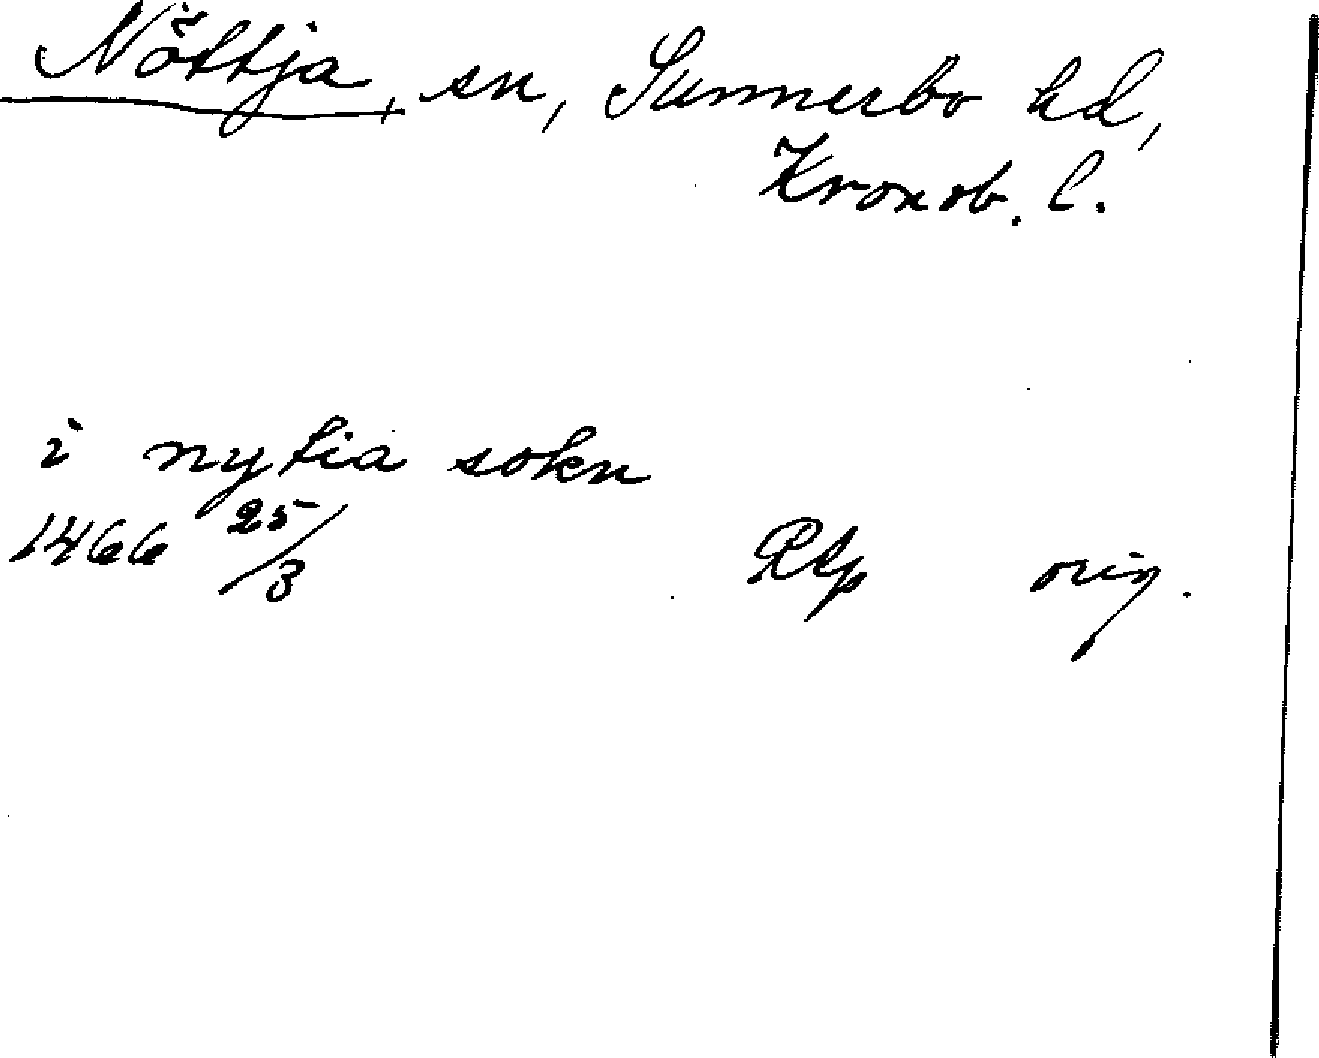 Nöttja, sn, Sunnerbo hd,
Kronob. l.
i nytia sokn
1466 25/3 Rtp orig.